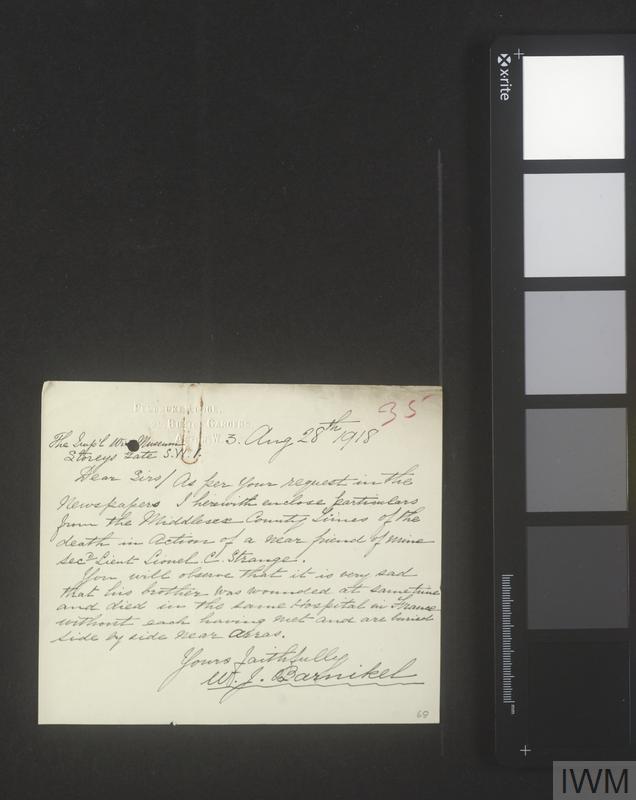 x-rite
35
Lodge,
Burton Gardens
W. 3. Aug 28th 1918
The Imp'l War Museum
Storeys Gate S.W.1.
Dear Sirs/ As per Your request in the
Newspapers I herewith enclose particulars
from the Middlesex County Times of the
death in Action of a near friend of mine
Secd Lieut Lionel C. Strange.
You will observe that it is very sad
that his brother was wounded at sametime
and died in the same Hospital in France
without each having met and are buried
side by side near Arras.
Yours faithfully
Wm. J. Barnikel
mm
IWM